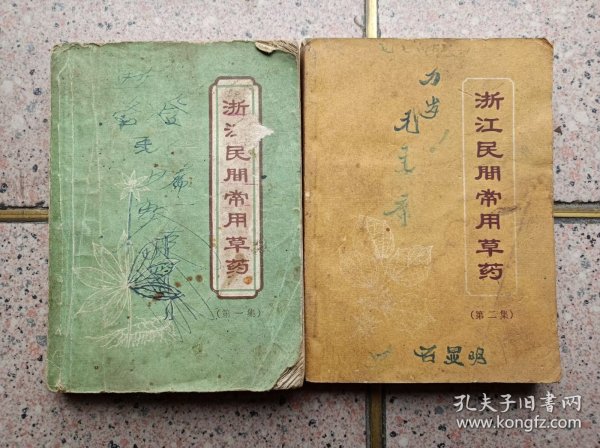 浙江民间常用草药
(第一集)
浙江民间常用草药
(第二集)
万岁!
毛主席
石显明
孔夫子旧书网
www.kongfz.com